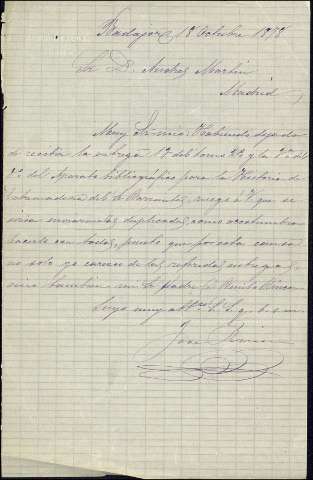 Badajoz 18 Octubre 1878
Sr. D. Andrés Martin
Madrid
Muy Sr. mio: Habiendo dejado
de recibir la entrega 1ª del tomo 2º y la 7ª del
2º del Aparato bibliográfico para la Historia de
Extremadura del Sr Barrantes, ruego a V. que se
sirva enviarmelas duplicadas como acostumbra
hacerlo con todas, puesto que por esta causa
no solo yo carezco de las referidas entregas,
sino tambien mi Sr. padre
Suyo muy atto. S. S. q. b. s. m.
José